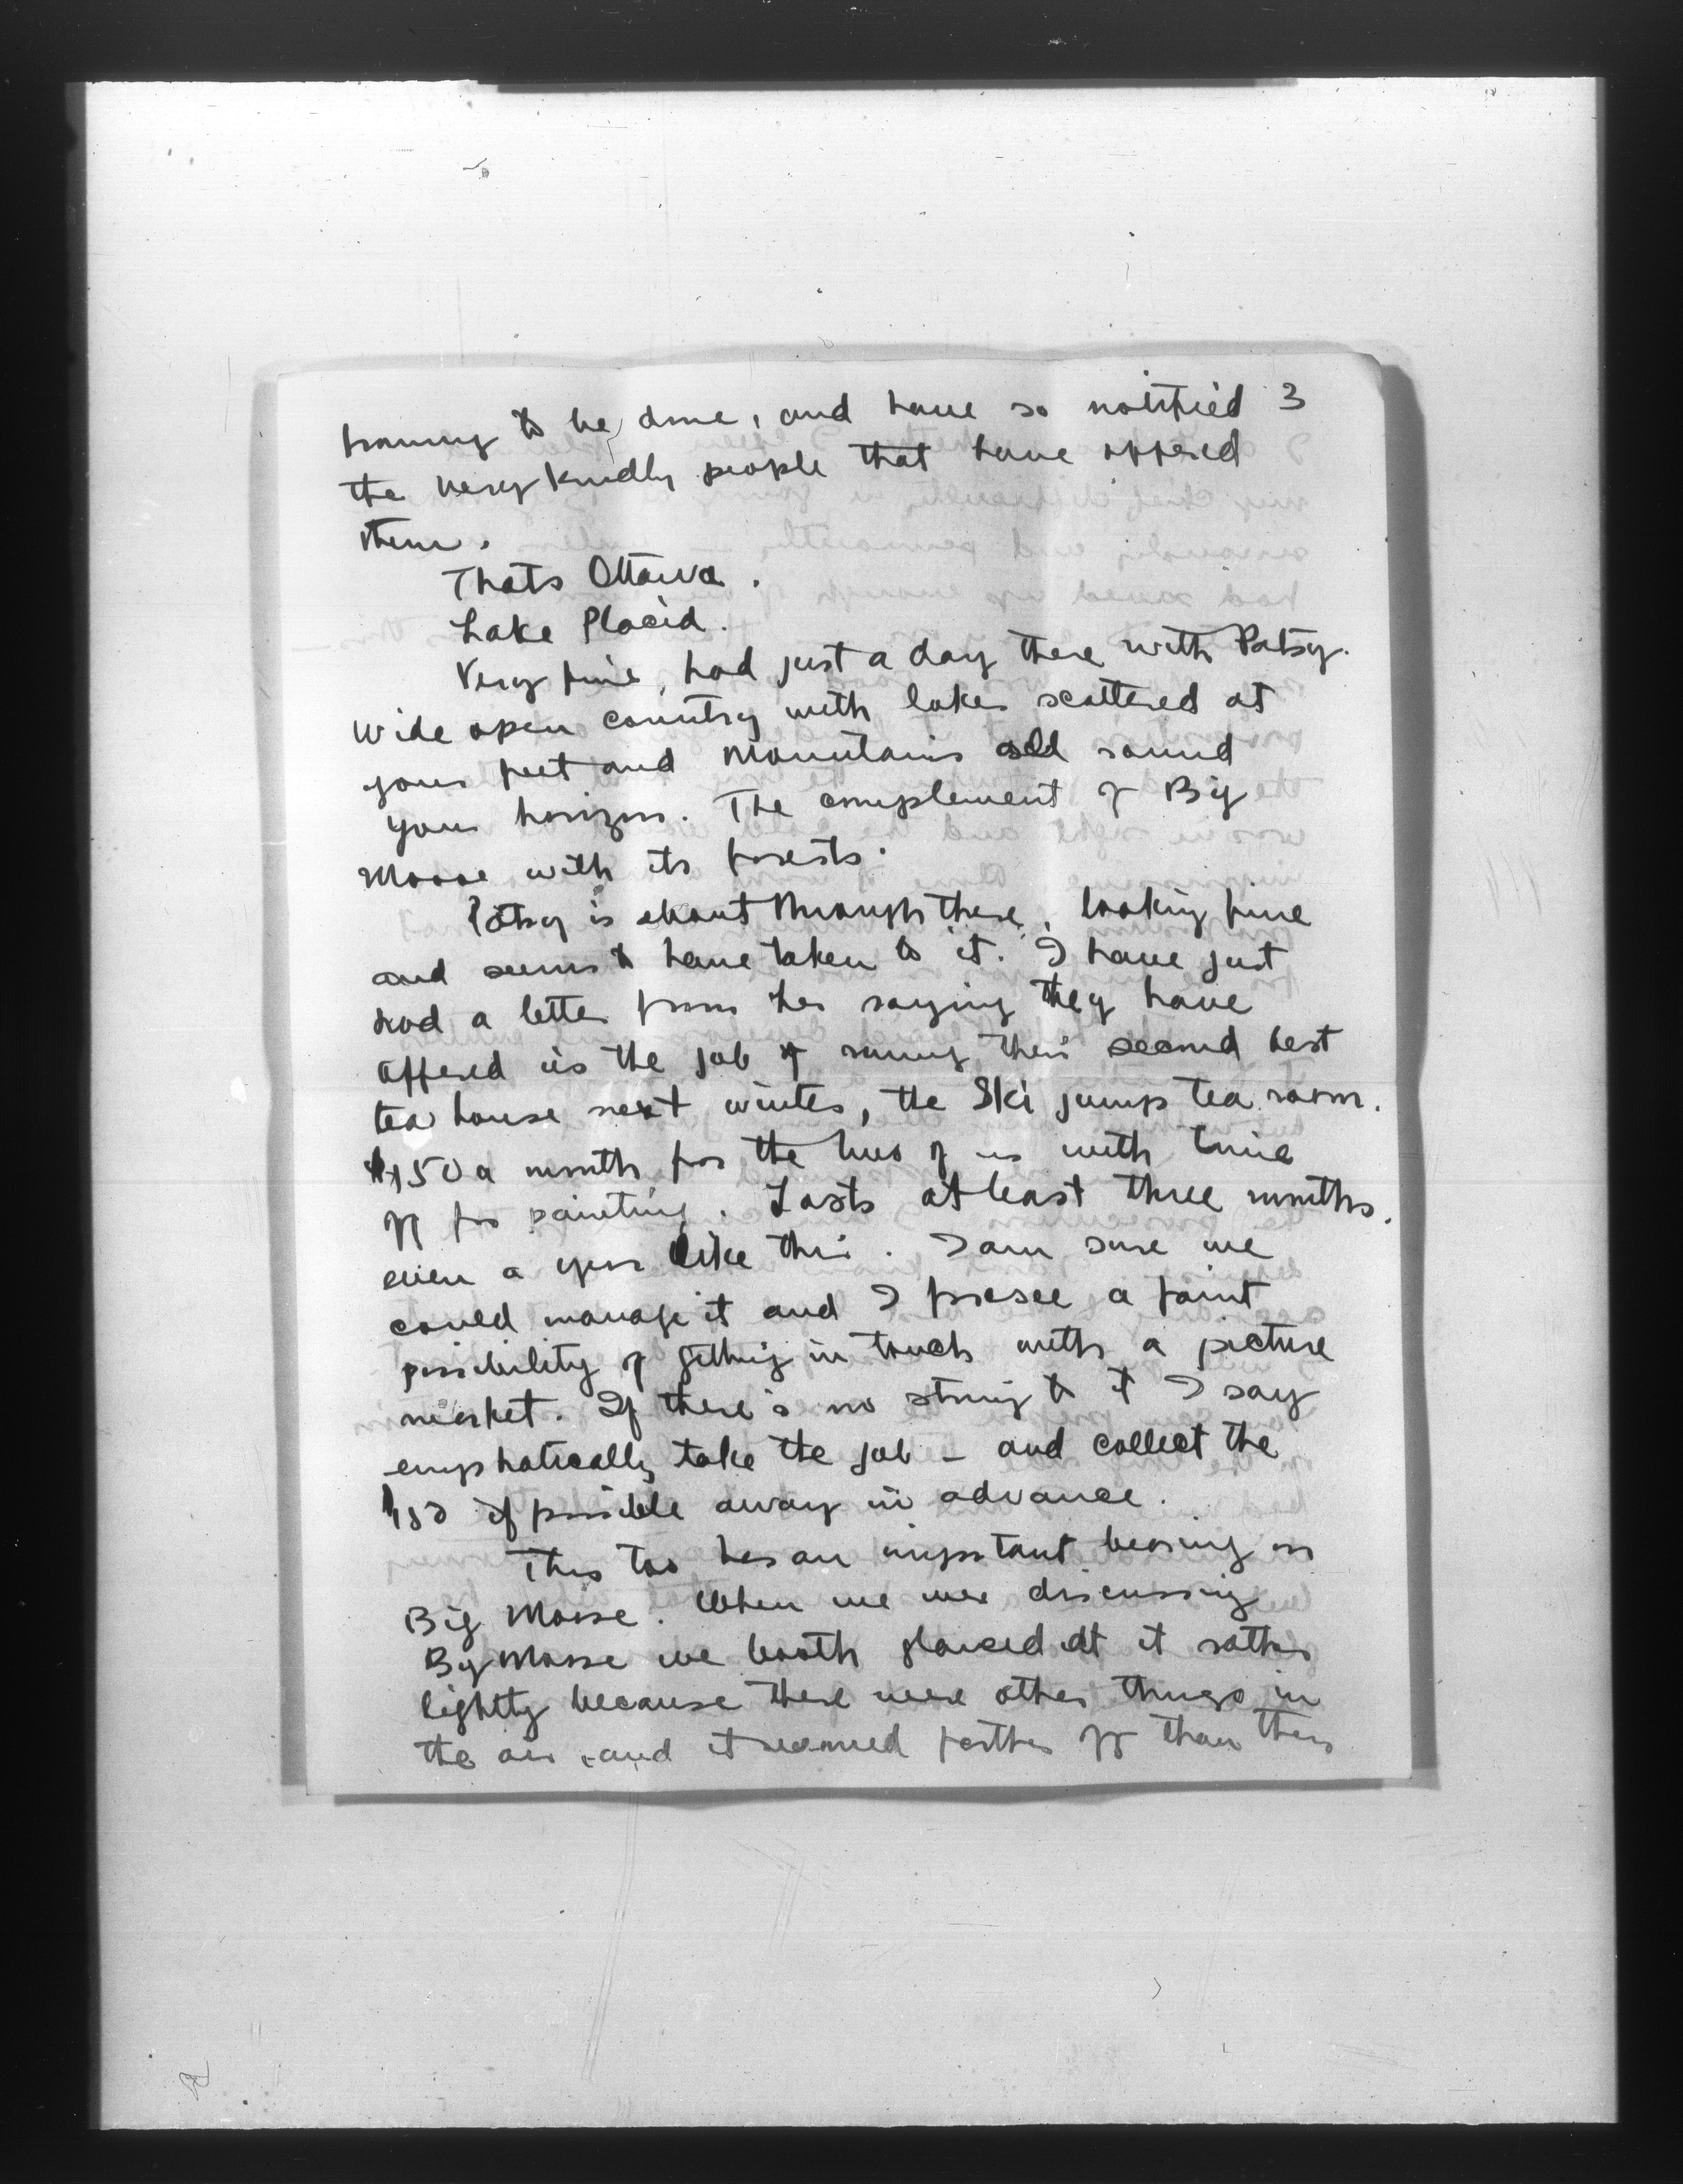 framing to be done, and have so notified 3
the very kindly people that have offered
them.
Thats Ottawa.
Lake Placid.
Very fine, had just a day there with Patsy.
Wide open country with lakes scattered at
your feet and mountains all round
your horizon. The complement of Big
Moose with its forests.
Patsy is about through there, looking fine
and seems to have taken to it. I have just
had a letter from her saying they have
offered us the job of running their second best
tea house next winter, the Ski jump tea room.
$150 a month for the two of us with time
off for painting. Lasts at least three months.
even a year like this. I am sure we
could manage it and I foresee a faint
possibility of getting in touch with a picture
market. If there's no string to it I say
emphatically take the job - and collect the
$150 if possible away in advance.
This too has an important bearing on
Big Moose. When we were discussing
Big Moose we both glanced at it rather
lightly because there were other things in
the air, and it seemed farther off than this